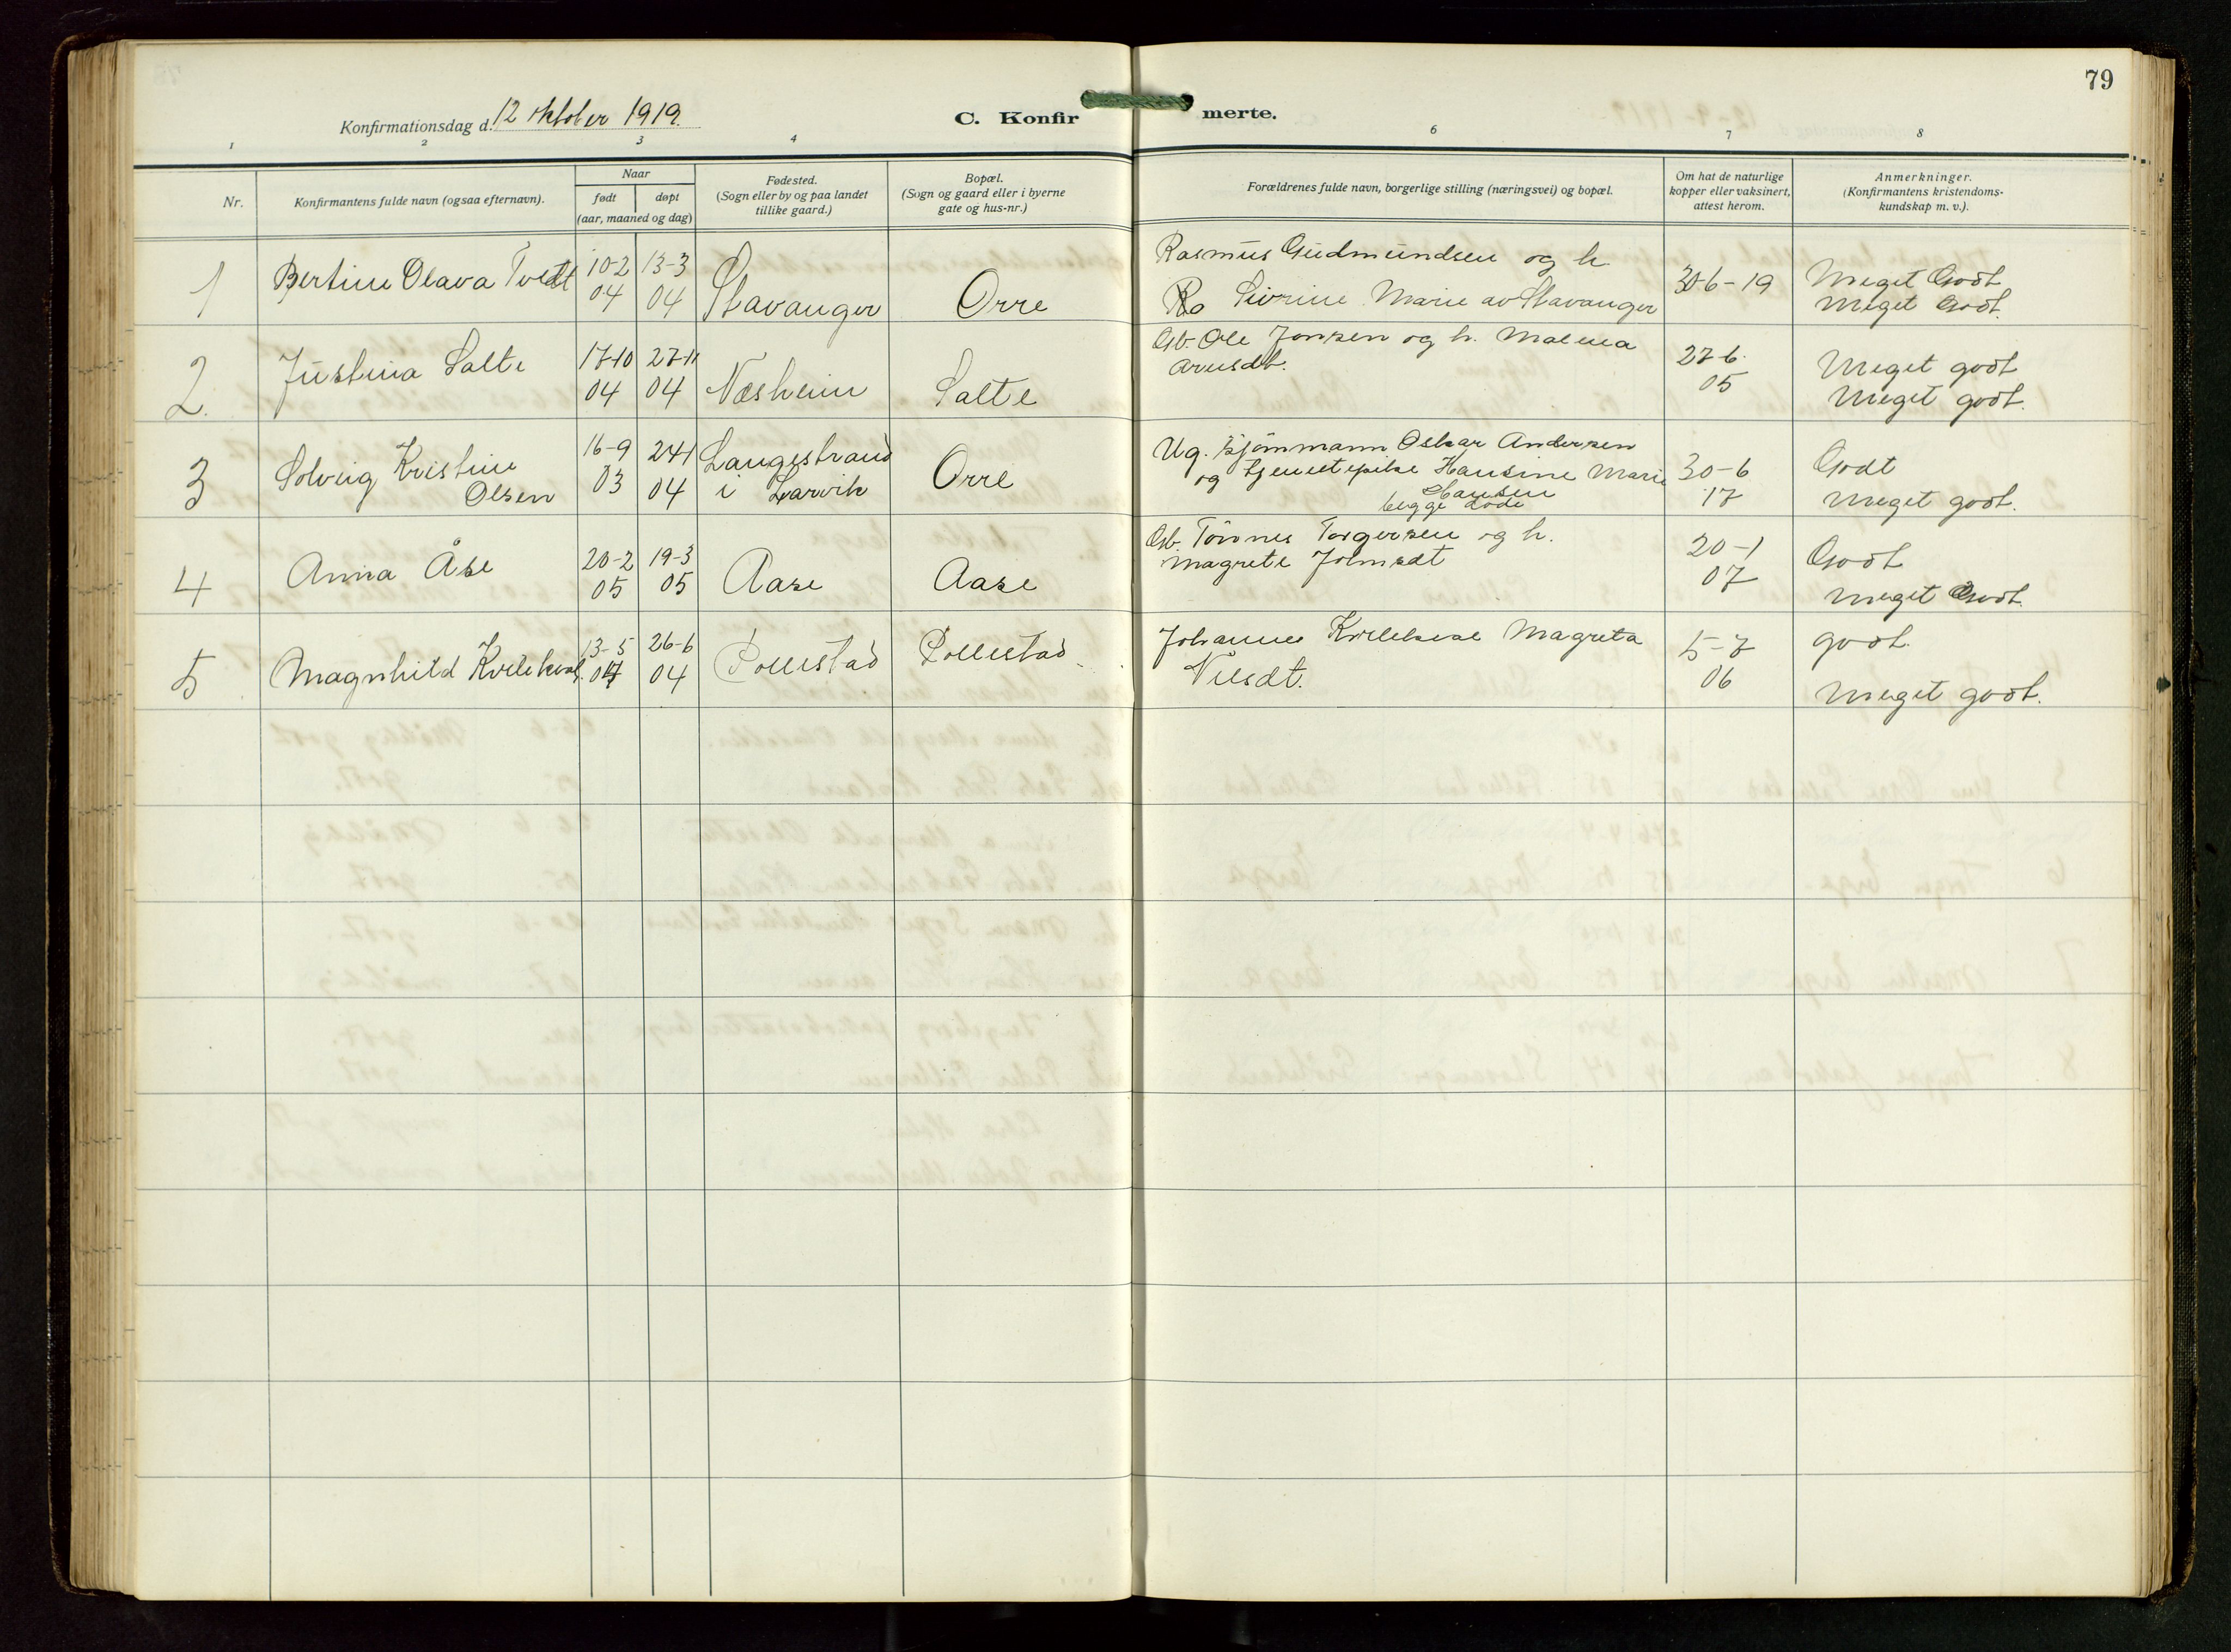 79
Konfirmationsdag d. 12 oktober 1919.
C. Konfir merte.
1 2 3 4 6 7 8
Nr.
Konfirmantens fulde navn (ogsaa efternavn).
Naar
født døpt
(aar, maaned og dag)
Fødested.
(Sogn eller by og paa landet
tillike gaard.)
Bopæl.
(Sogn og gaard eller i byerne
gate og hus-nr.)
Forældrenes fulde navn, borgerlige stilling (næringsvei) og bopæl.
Om hat de naturlige
kopper eller vaksinert,
attest herom.
Anmerkninger.
(Konfirmantens kristendoms-
kundskap m. v.).
1 Bertine Olava Tvedt
10-2 13-3
04 04
Stavanger
Orre
Rasmus Gudmundsen og h.
Sivrine Marie av Stavanger
30-6-19
Meget Godt
Meget Godt.
2. Justina Salte
17-10 27-11
04 04
Næsheim
Salte
Gb. Ole Jonsen og h. Malena
Arnsdt.
27-6.
05
Meget godt
Meget godt.
3 Solveig Kristine
Olsen
16-9 24-1
03 04
Langestrand
i Larvik
Orre
Ug. sjømmann Oskar Andersen
og tjenestepike Hansine Marie
Hansen
begge døde
30-6
17
Godt
Meget godt.
4 Anna Åse
20-2 19-3
05 05
Aase
Aase
Gb. Tönnes Torgersen og h.
Magrete Johnsdt
20-1
07
Godt
Meget Godt.
5 Magnhild Kvilekval.
13-5 26-6
04 04
Pollestad
Pollestad
Johannes Kvilekval Magreta
Nilsdt.
5-7
06
godt.
Meget godt.